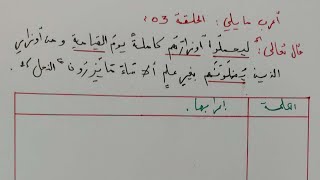 أعرب ما يلي: الحلقة: 03
قال تعالى: "ليحملوا أوزارهم كاملةً يومَ القيامة و من أوزار
الذين يُضلّونهم بغير علمٍ ألا ساءَ ما يَزِرُون" النحل
الكلمة إعرابها.